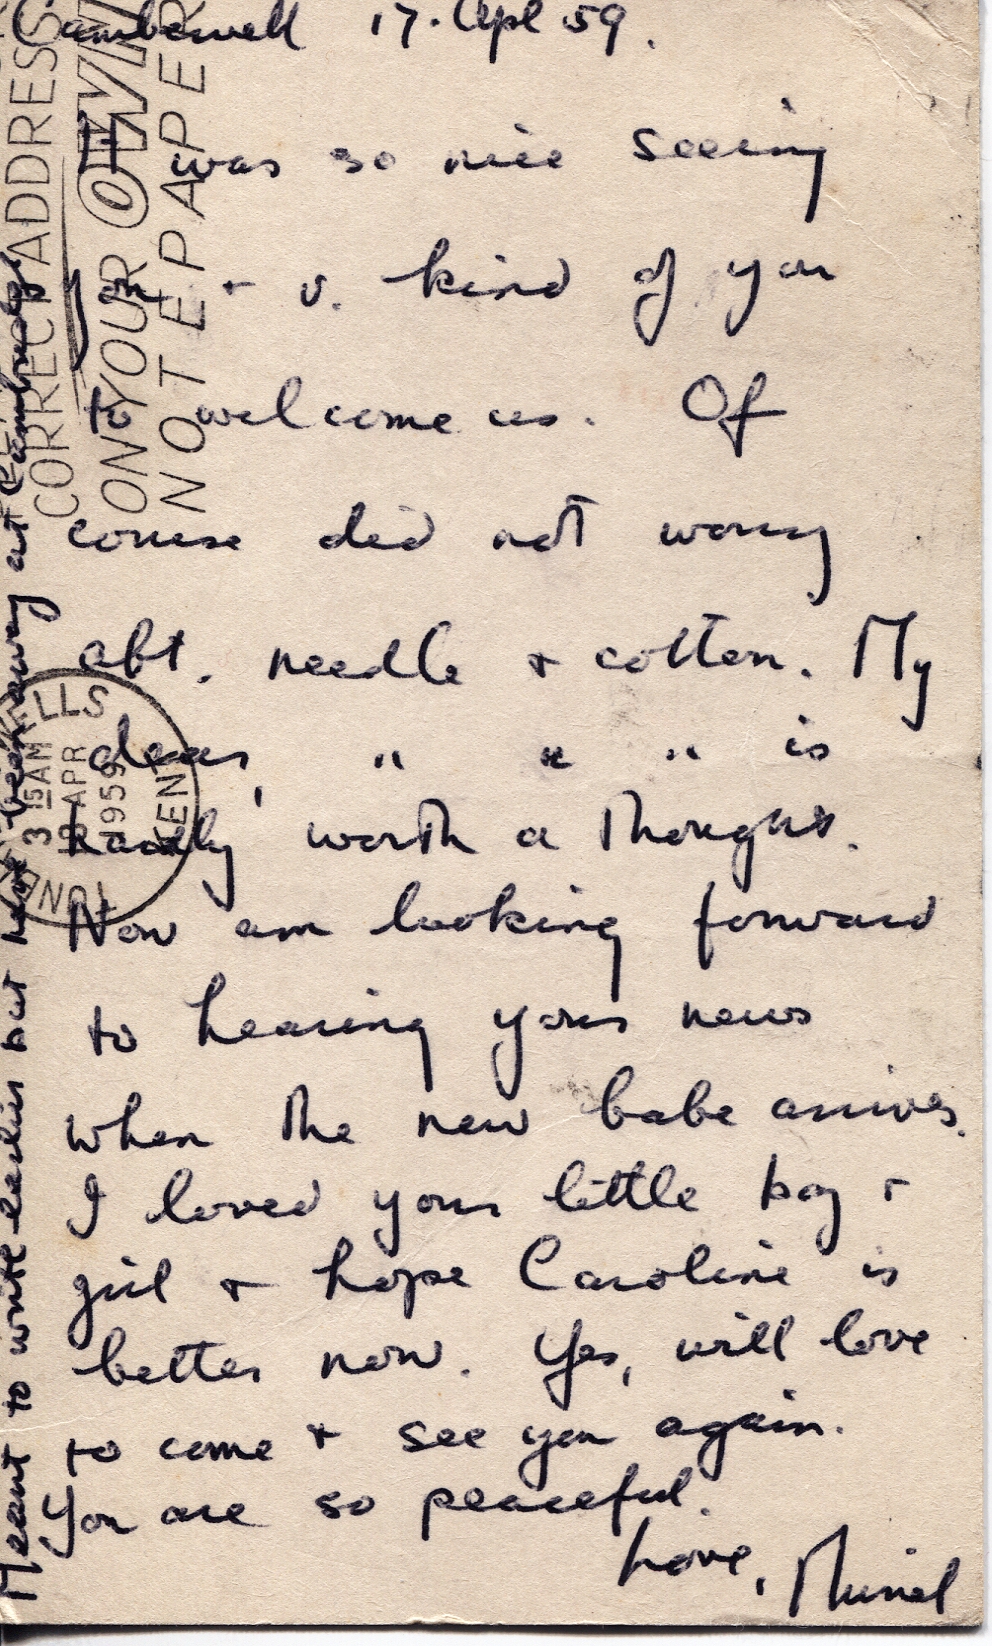 Camberwell 17. Apl 59.
It was so nice seeing
you + v. kind of you
to welcome us. Of
course did not worry
abt. needle + cotton. My
dear, " " " is
hardly worth a thought.
Now am looking forward
to hearing your news
when the new babe arrives.
I loved your little boy +
girl + hope Caroline is
better now. Yes, will love
to come + see you again.
You are so peaceful.
Love, Muriel
Meant to write earlier but have been away at Cambridge
CORRECT ADDRESS
ON YOUR OWN
NOTEPAPER
WELLS
3 15AM
APR
1959
KENT